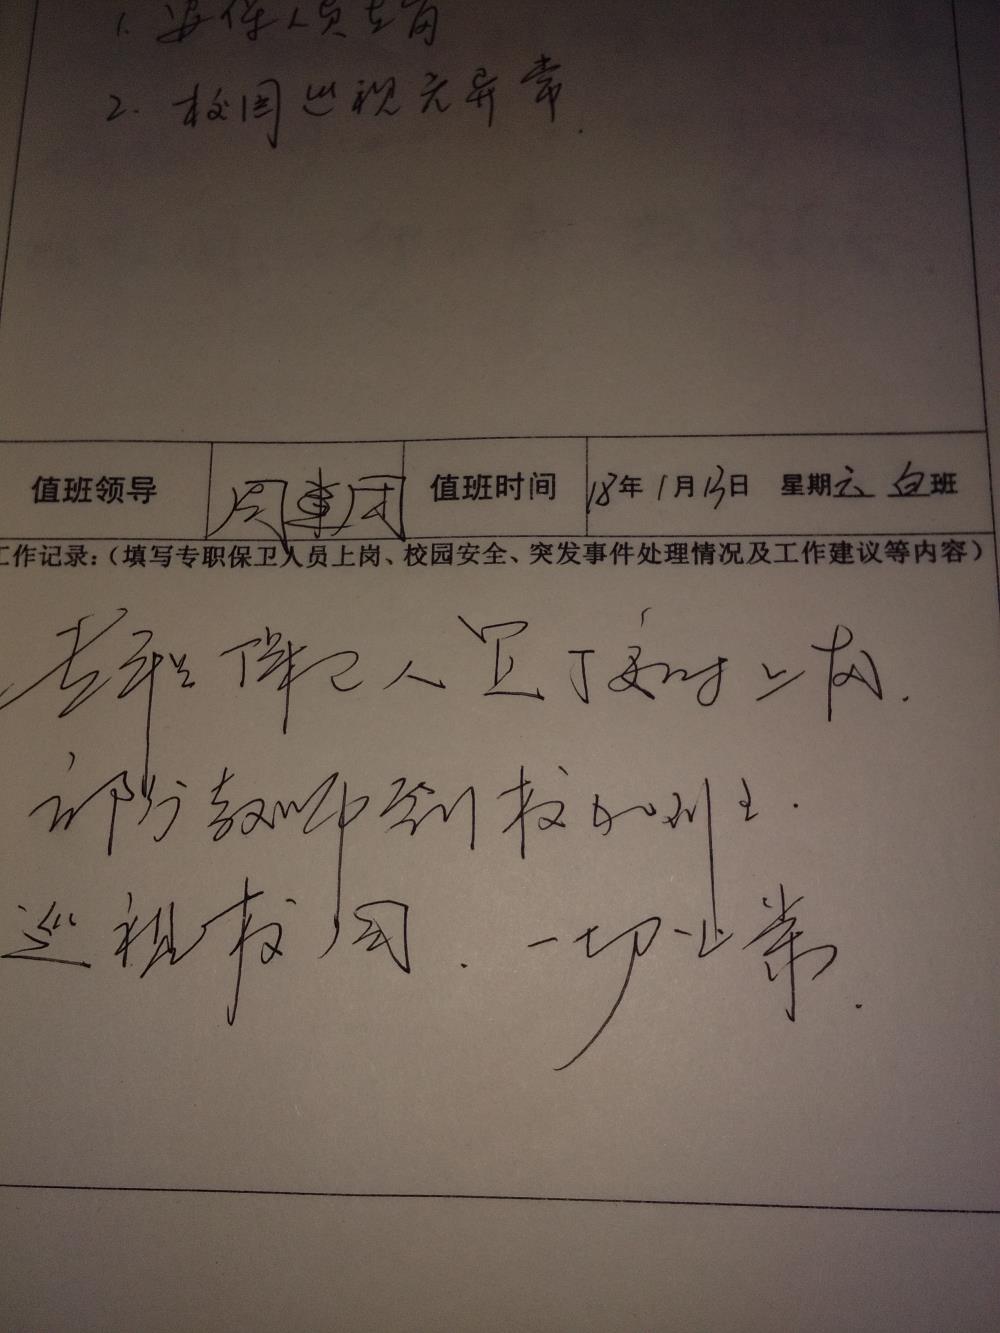 1. 安保人员在岗
2. 校园巡视无异常.
值班领导 周 值班时间 18年1月13日 星期六 白班
工作记录：（填写专职保卫人员上岗、校园安全、突发事件处理情况及工作建议等内容）
专职保卫人员按时上岗.
部分教师到校加班.
巡视校园. 一切正常.